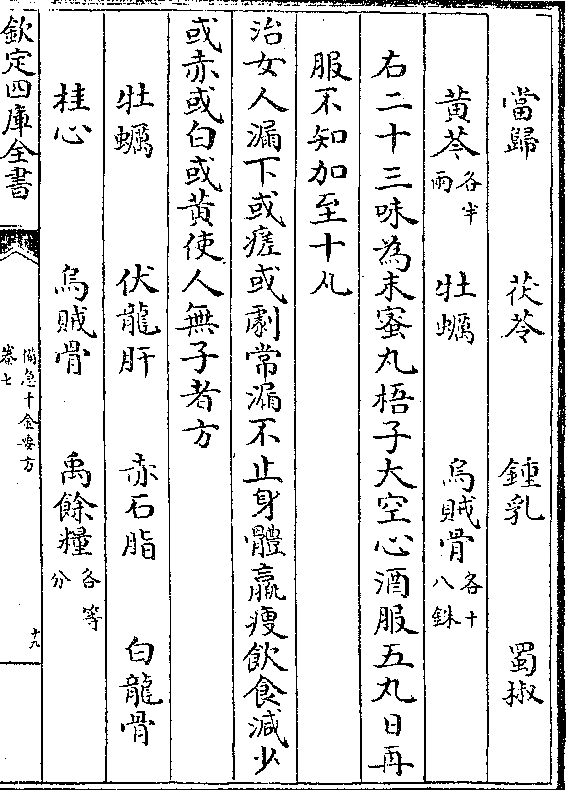 當歸　茯苓　鍾乳　蜀椒
黃芩各半兩　牡蠣　烏賊骨各十八銖
右二十三味為末蜜丸梧子大空心酒服五丸日再
服不知加至十丸
治女人漏下或瘥或劇常漏不止身體羸瘦飲食減少
或赤或白或黃使人無子者方
牡蠣　伏龍肝　赤石脂　白龍骨
桂心　烏賊骨　禹餘糧各等分
欽定四庫全書
備急千金要方
卷七
十九